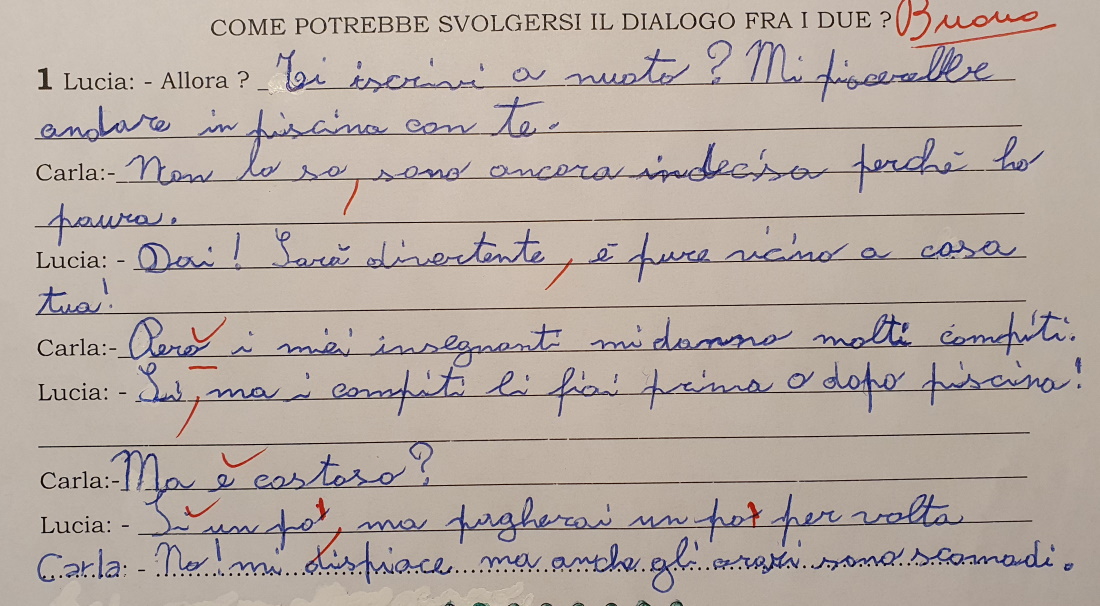 COME POTREBBE SVOLGERSI IL DIALOGO FRA I DUE ? Buono
1 Lucia: - Allora ? Ti iscrivi a nuoto? Mi piacerebbe
andare in piscina con te.
Carla:- Non lo so, sono ancora indecisa perchè ho
paura.
Lucia: - Dai! Sarà divertente, è pure vicino a casa
tua!
Carla:- Però i miei insegnanti mi danno molti compiti.
Lucia: - Sì, ma i compiti li fiai prima o dopo piscina!
Carla:- Ma è costoso?
Lucia: - Sì un po', ma pagherai un po' per volta
Carla: - No! mi dispiace ma anche gli orari sono scomodi.